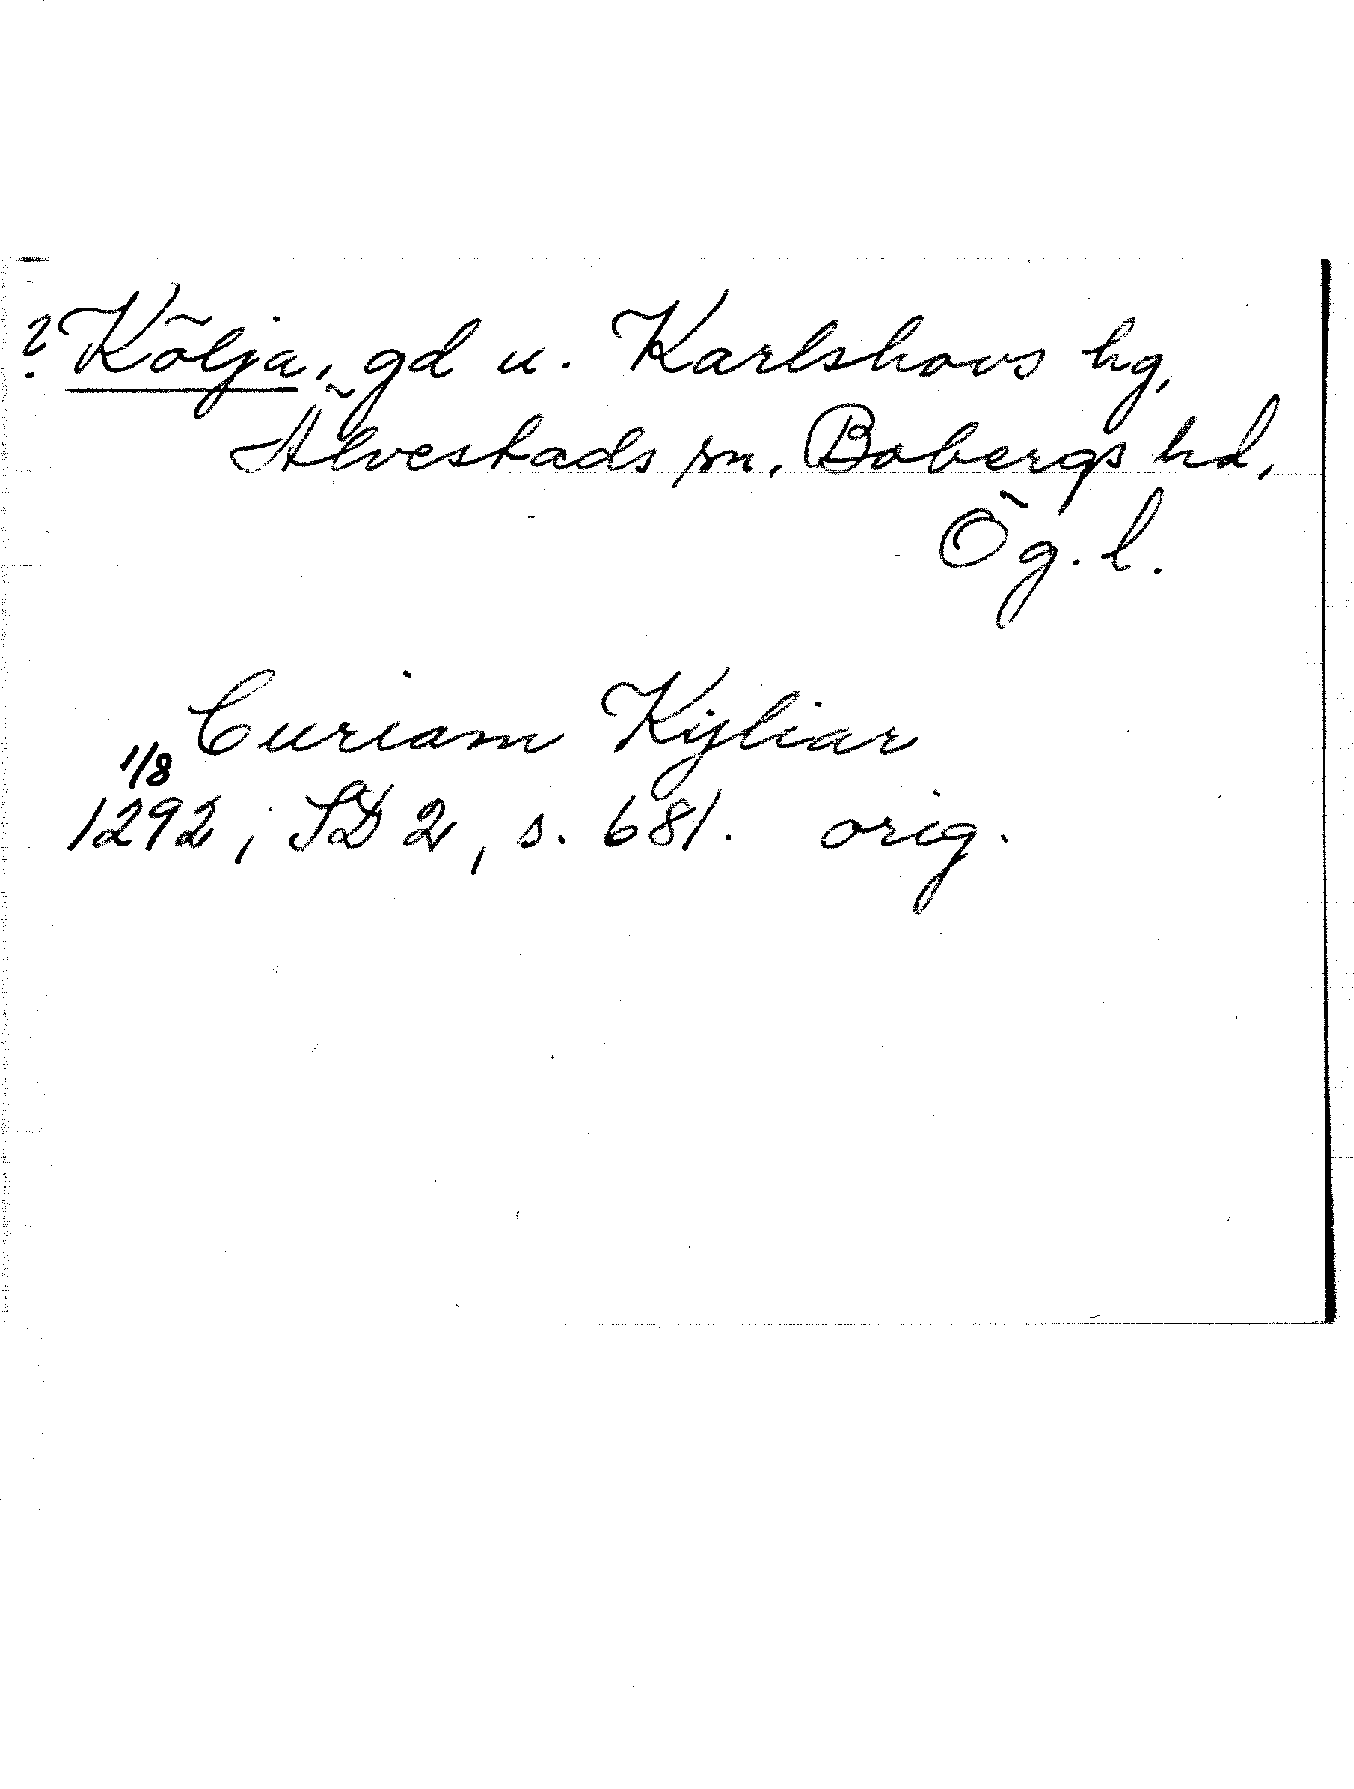 ? Kölja, gd u. Karlshovs hg,
Älvestads sn, Bobergs hd,
Ög. l.
Curiam Kyliar
1/8
1292; SD 2, s. 681. orig.